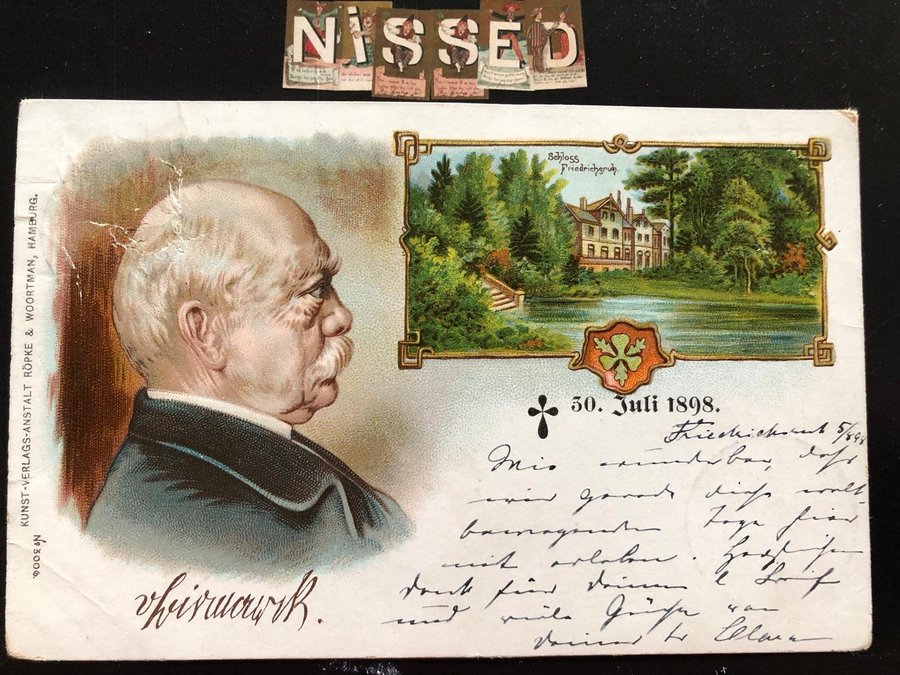 NiSSED
Schloss
Friedrichsruh.
KUNST-VERLAGS-ANSTALT RÖPKE & WOORTMAN, HAMBURG.
No 3009
30. Juli 1898.
Friedrichsruh 5/8 98
Wie wunderbar, daß
wir gerade diese welt-
bewegenden Tage hier
mit erleben. Herzlichen
Dank für Deinen l. Brief
und viele Grüße von
Deiner tr. Clara
v Bismarck.